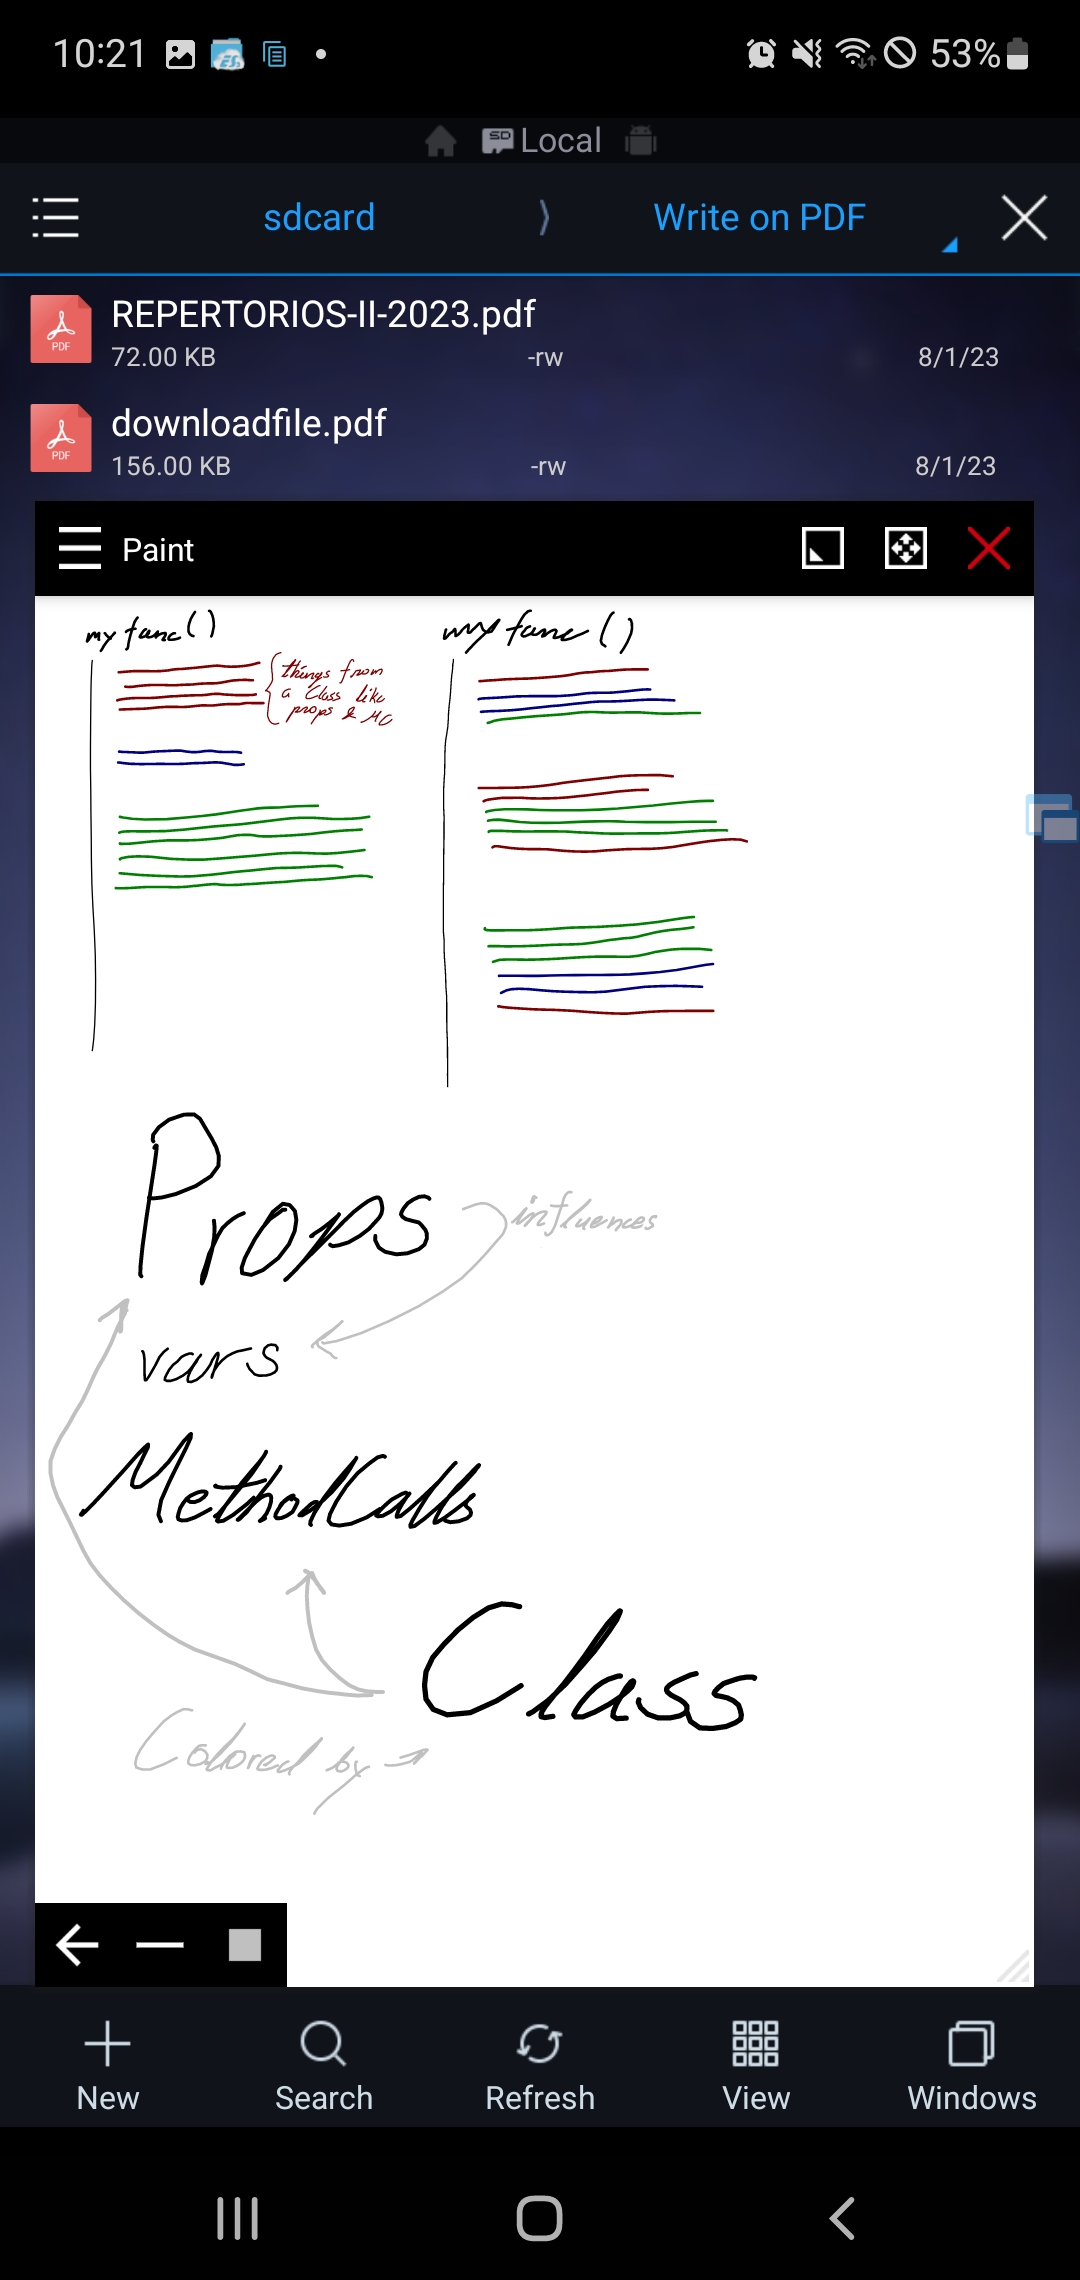 10:21 53%
Local
sdcard ⟩ Write on PDF
REPERTORIOS-II-2023.pdf
72.00 KB -rw 8/1/23
downloadfile.pdf
156.00 KB -rw 8/1/23
Paint
my func() my func()
things from
a Class like
props & MC
Props
influences
vars
MethodCalls
Class
Colored by →
New Search Refresh View Windows